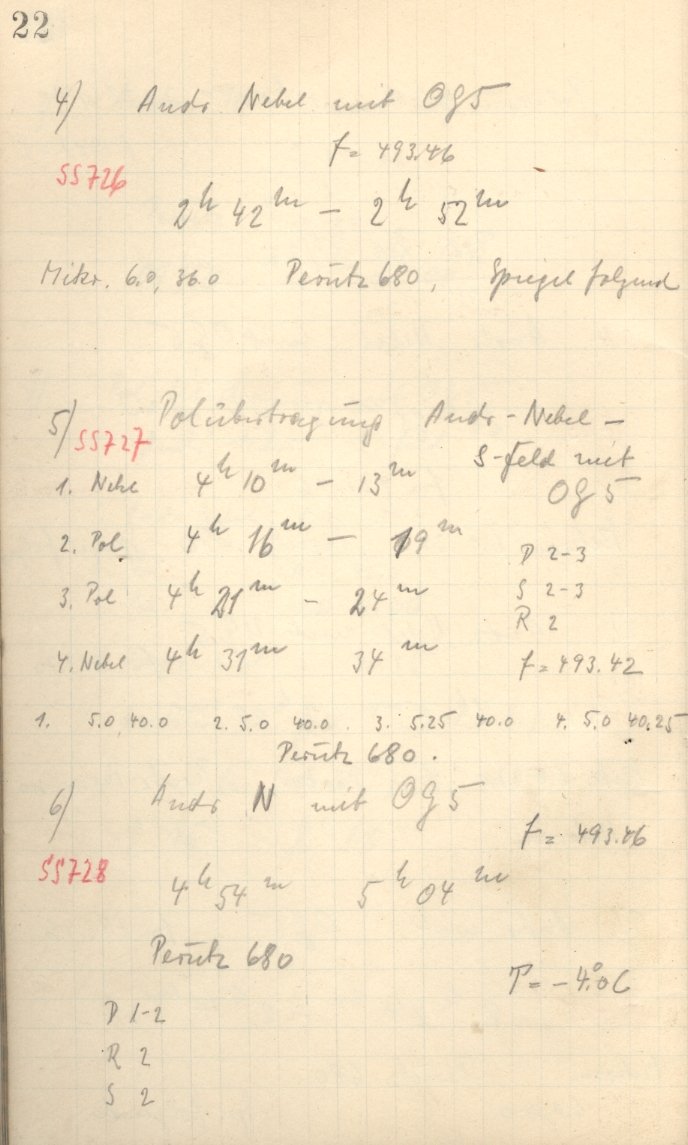 22
4) Andr Nebel mit OG5
f = 493.46
SS726
2h 42m – 2h 52m
Mikr. 6.0, 36.0 Perutz 680, Spiegel folgend
5) Polübertragung Andr-Nebel –
SS727 S-feld mit
1. Nebel 4h 10m – 13m OG5
2. Pol 4h 16m – 19m D 2-3
3. Pol 4h 21m – 24m S 2-3
R 2
4. Nebel 4h 31m 34m f = 493.42
1. 5.0, 40.0 2. 5.0 40.0 3. 5.25 40.0 4. 5.0 40.25
Perutz 680.
6) Andr N mit OG5
f = 493.46
SS728
4h 54m 5h 04m
Perutz 680
T = -4.°0C
D 1-2
R 2
S 2